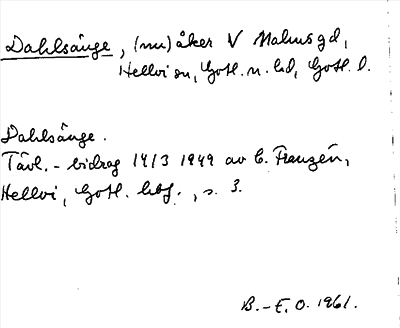 Dahlsänge, (nu) åker V Malms gd,
Hellvi sn, Gotl. n. hd, Gotl. l.
Dahlsänge.
Tävl.-bidrag 14/3 1949 av C. Franzén,
Hellvi, Gotl. hbf., s. 3.
B.-E. O. 1961.